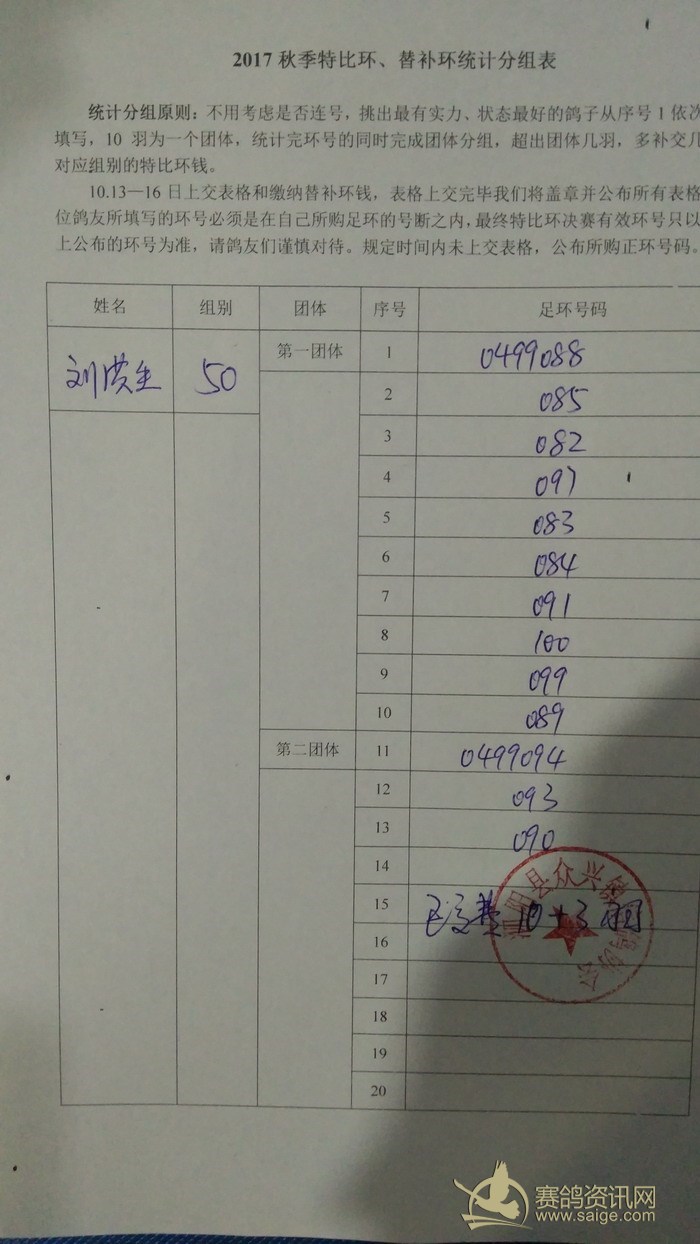 2017 秋季特比环、替补环统计分组表
统计分组原则：不用考虑是否连号，挑出最有实力、状态最好的鸽子从序号 1 依次
填写，10 羽为一个团体，统计完环号的同时完成团体分组，超出团体几羽，多补交几
对应组别的特比环钱。
10.13—16 日上交表格和缴纳替补环钱，表格上交完毕我们将盖章并公布所有表格
位鸽友所填写的环号必须是在自己所购足环的号断之内，最终特比环决赛有效环号只以
上公布的环号为准，请鸽友们谨慎对待。规定时间内未上交表格，公布所购正环号码。
姓名 组别 团体 序号 足环号码
刘洪生 50 第一团体 1 0499088
2 085
3 082
4 097
5 083
6 084
7 091
8 100
9 099
10 089
第二团体 11 0499094
12 093
13 090
14
15 已交费 10+3 羽
16
17
18
19
20
县众兴
赛鸽资讯网
www.saige.com